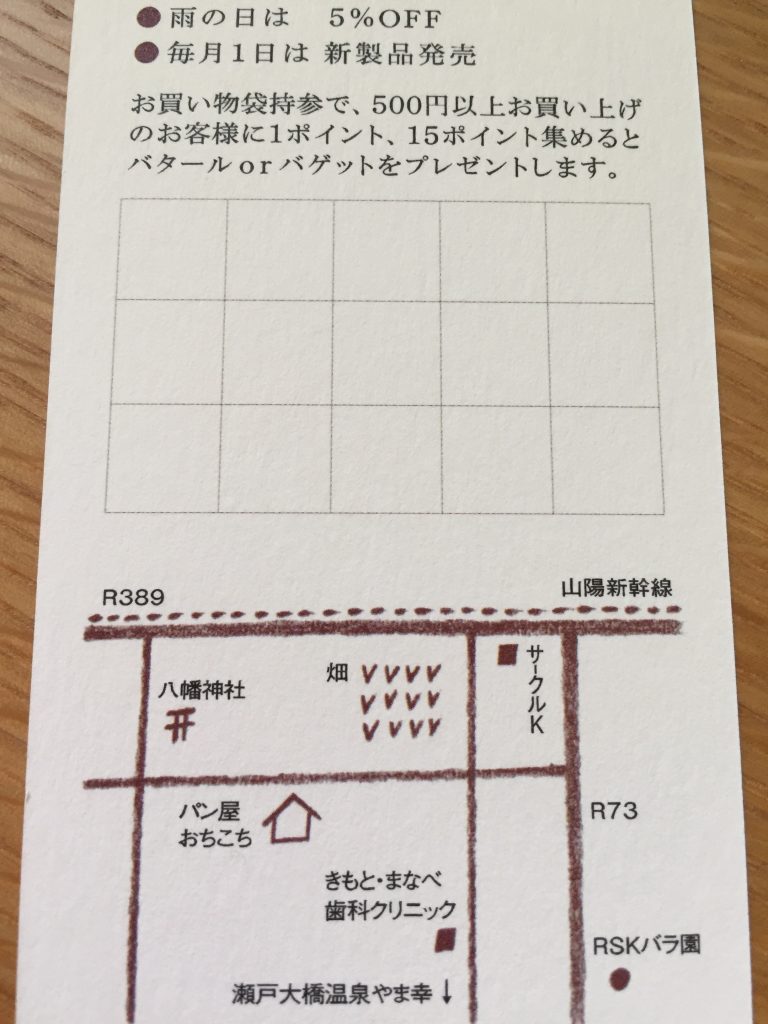 ●雨の日は 5%OFF
●毎月1日は 新製品発売
お買い物袋持参で、500円以上お買い上げ
のお客様に1ポイント、15ポイント集めると
バタールorバゲットをプレゼントします。
R389
山陽新幹線
八幡神社
畑
サークルK
パン屋
おちこち
R73
きもと・まなべ
歯科クリニック
RSKバラ園
瀬戸大橋温泉やま幸↓